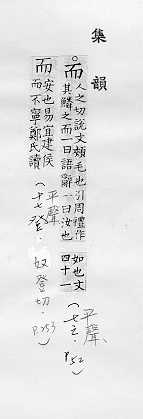 集韻
而 人之切說文頰毛也引周禮作
其鱗之而一曰語辭一曰汝也
如也文
四十一
(七之. P.52)
平聲
而 安也易宜建侯
而不寧鄭氏讀
平聲
(十七登. 奴登切. P.253)